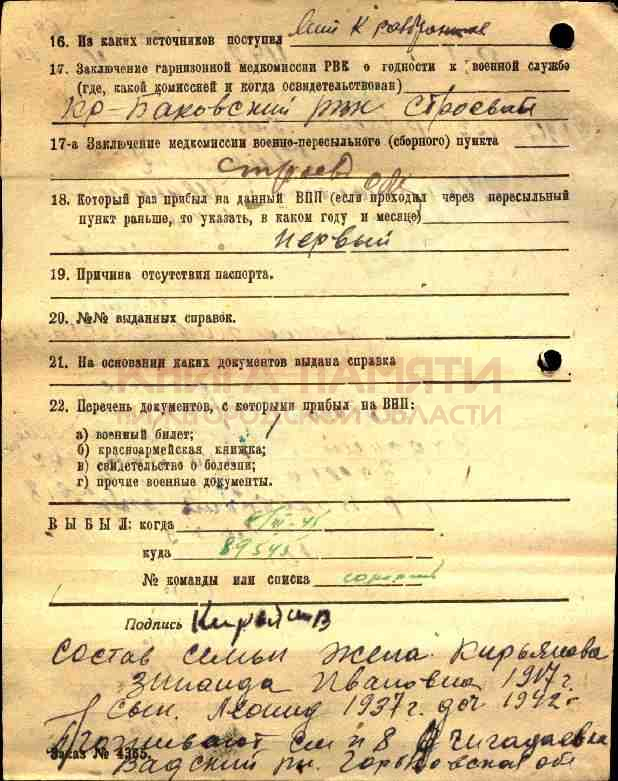 16. Из каких источников поступил
17. Заключение гарнизонной медкомиссии РВК о годности к военной службе
(где, какой комиссией и когда освидетельствован)
Кр-Баковский рвк строевой
17-а Заключение медкомиссии военно-пересыльного (сборного) пункта
строев
18. Который раз прибыл на данный ВПП (если проходил через пересыльный
пункт раньше, то указать, в каком году и месяце)
первый
19. Причина отсутствия паспорта.
20. №№ выданных справок.
21. На основании каких документов выдана справка
КНИГА ПАМЯТИ
НИЖЕГОРОДСКОЙ ОБЛАСТИ
22. Перечень документов, с которыми прибыл на ВПП:
а) военный билет;
б) красноармейская книжка;
в) свидетельство о болезни;
г) прочие военные документы.
ВЫБЫЛ: когда
куда 89545
№ команды или списка
Подпись
Состав семьи жена Кирьянова
Зинаида Ивановна 1917 г.
сын Леонид 1937 г. доч 1942 г
проживают
Заказ № 4365.
Вадский рн. Горьковская обл